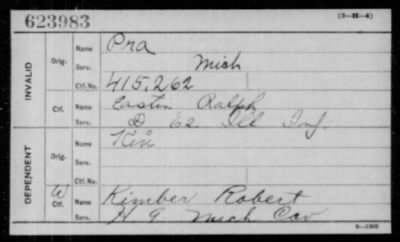 623983
(3—H—4)
INVALID
Orig.
Name Ora
Serv. Mich
Ctf. No. 415,262
Ctf.
Name Castin Ralph
Serv. D 62 Ill Inf.
DEPENDENT
Orig.
Name
Serv.
Ctf. No.
W
Ctf.
Name Kimber Robert
Serv. H 9 Mich Cav